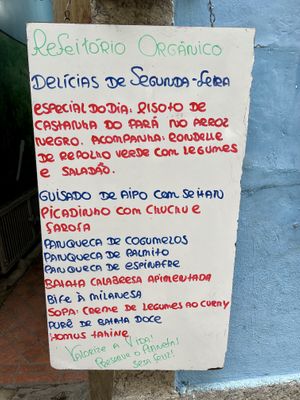 Refeitório Orgânico
Delícias de Segunda-feira
Especial do dia: Risoto de
Castanha do Pará no arroz
negro. Acompanha: Rondelle
de repolho verde com legumes
e saladão.
Guisado de aipo com seitan
Picadinho com chuchu e
farofa
Panqueca de cogumelos
Panqueca de palmito
Panqueca de espinafre
Batata calabresa apimentada
Bife à milanesa
Sopa: creme de legumes ao curry
Purê de batata doce
Homus tahine
Valorize a Vida!
Preserve o Planeta!
Seja feliz!